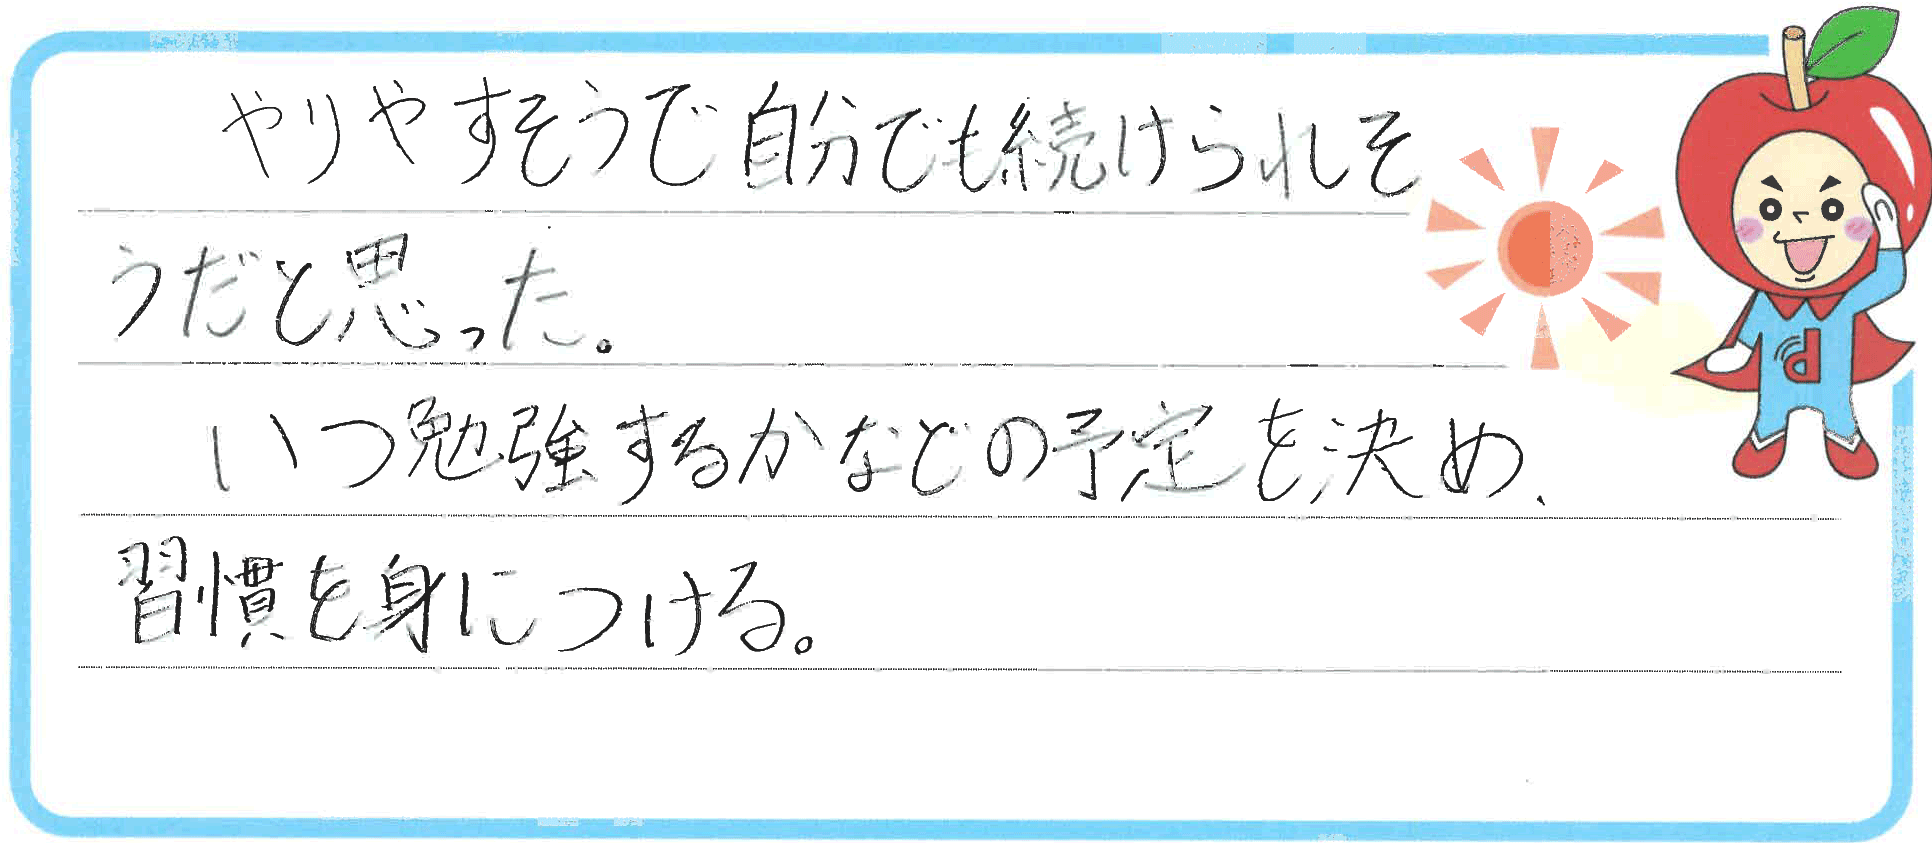 やりやすそうで自分でも続けられそ
うだと思った。
いつ勉強するかなどの予定を決め、
習慣を身につける。